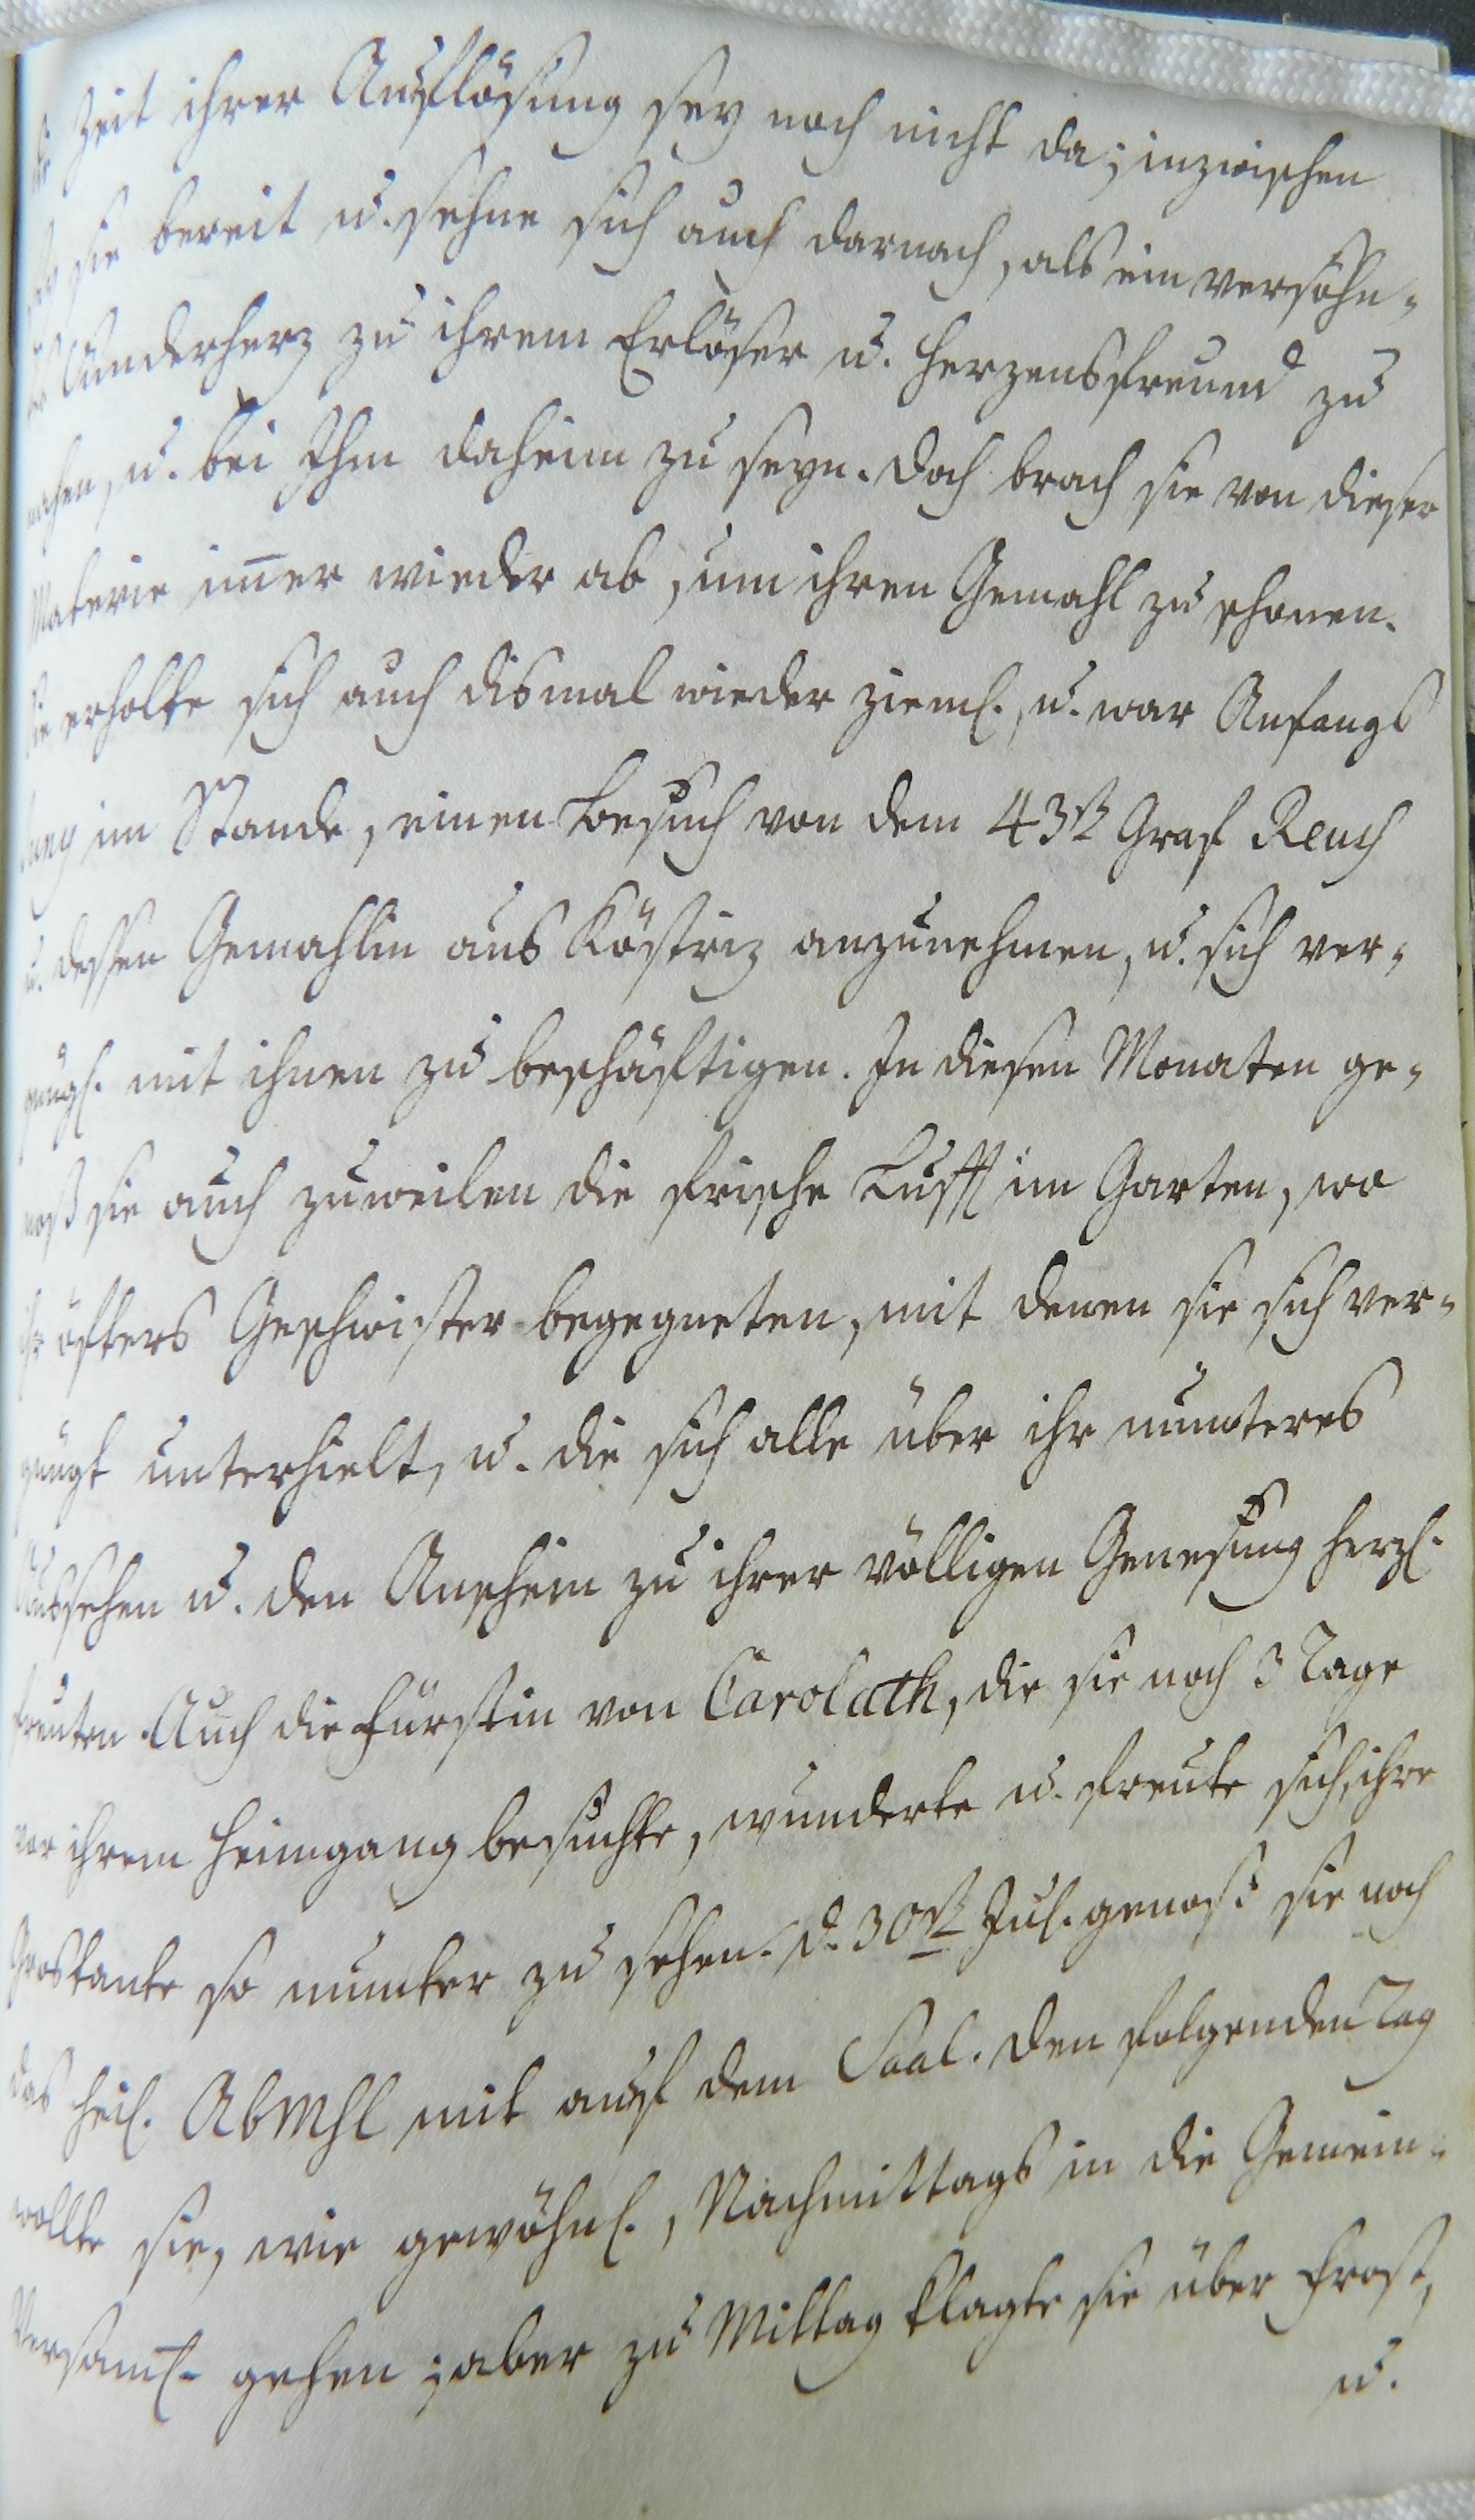 Zeit ihrer Auflösung sey noch nicht da; inzwischen
sie bereit u. sehne sich auch darnach, als ein versöhn-
Sünderherz zu ihrem Erlöser u. Herzensfreund zu
u. bei Ihm daheim zu seyn. Doch brach sie von dieser
Materie im̅er wieder ab, um ihren Gemahl zu schonen.
Sie erholte sich auch dismal wieder zieml., u. war Anfangs
im Stande, einen Besuch von dem 43st. Graf Reuß
u. dessen Gemahlin aus Köstriz anzunehmen, u. sich ver-
gnügl. mit ihnen zu beschäftigen. In diesen Monaten ge-
noß sie auch zuweilen die frische Lufft im Garten, wo
ihr öfters Geschwister begegneten, mit denen sie sich ver-
gnügt unterhielt, u. die sich alle über ihr munteres
Aussehen u. den Anschein zu ihrer völligen Genesung herzl.
freuten. Auch die Fürstin von Carolath, die sie noch 3 Tage
vor ihrem Heimgang besuchte, wunderte u. freute sich, ihre
Grostante so munter zu sehen. d. 30st. Jul. genoß sie noch
das heil. Abmhl mit auf dem Saal. Den folgenden Tag
wollte sie, wie gewöhnl., Nachmittags in die Gemein-
Versam̅l. gehen; aber zu Mittag klagte sie über Frost,
u.